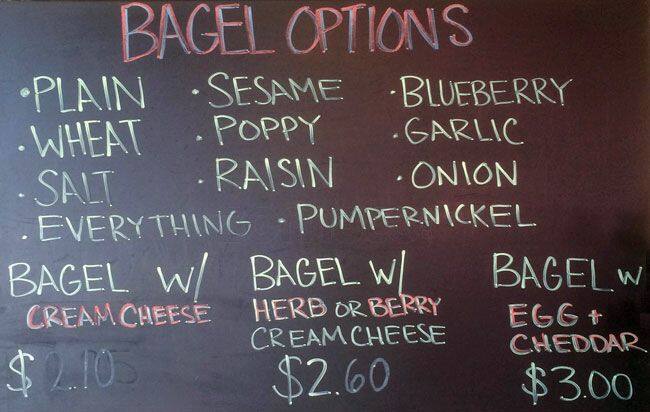 BAGEL OPTIONS
• PLAIN • SESAME • BLUEBERRY
• WHEAT • POPPY • GARLIC
• SALT • RAISIN • ONION
• EVERYTHING • PUMPERNICKEL
BAGEL W/
CREAM CHEESE
$
BAGEL W/
HERB OR BERRY
CREAM CHEESE
$2.60
BAGEL W
EGG +
CHEDDAR
$3.00